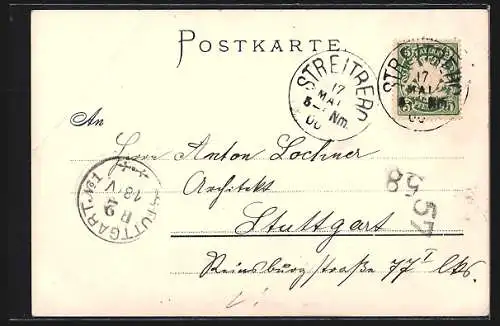 POSTKARTE.
STREITBERG
17
MAI
5- Nm.
00
STREITBERG
17
MAI
Nm.
00
5 BAYERN 5
An
Herrn Anton Lochner
Architekt
Stuttgart
Reinsburgstraße 77 I
STUTTGART No 1
18 V
12
57
5
8